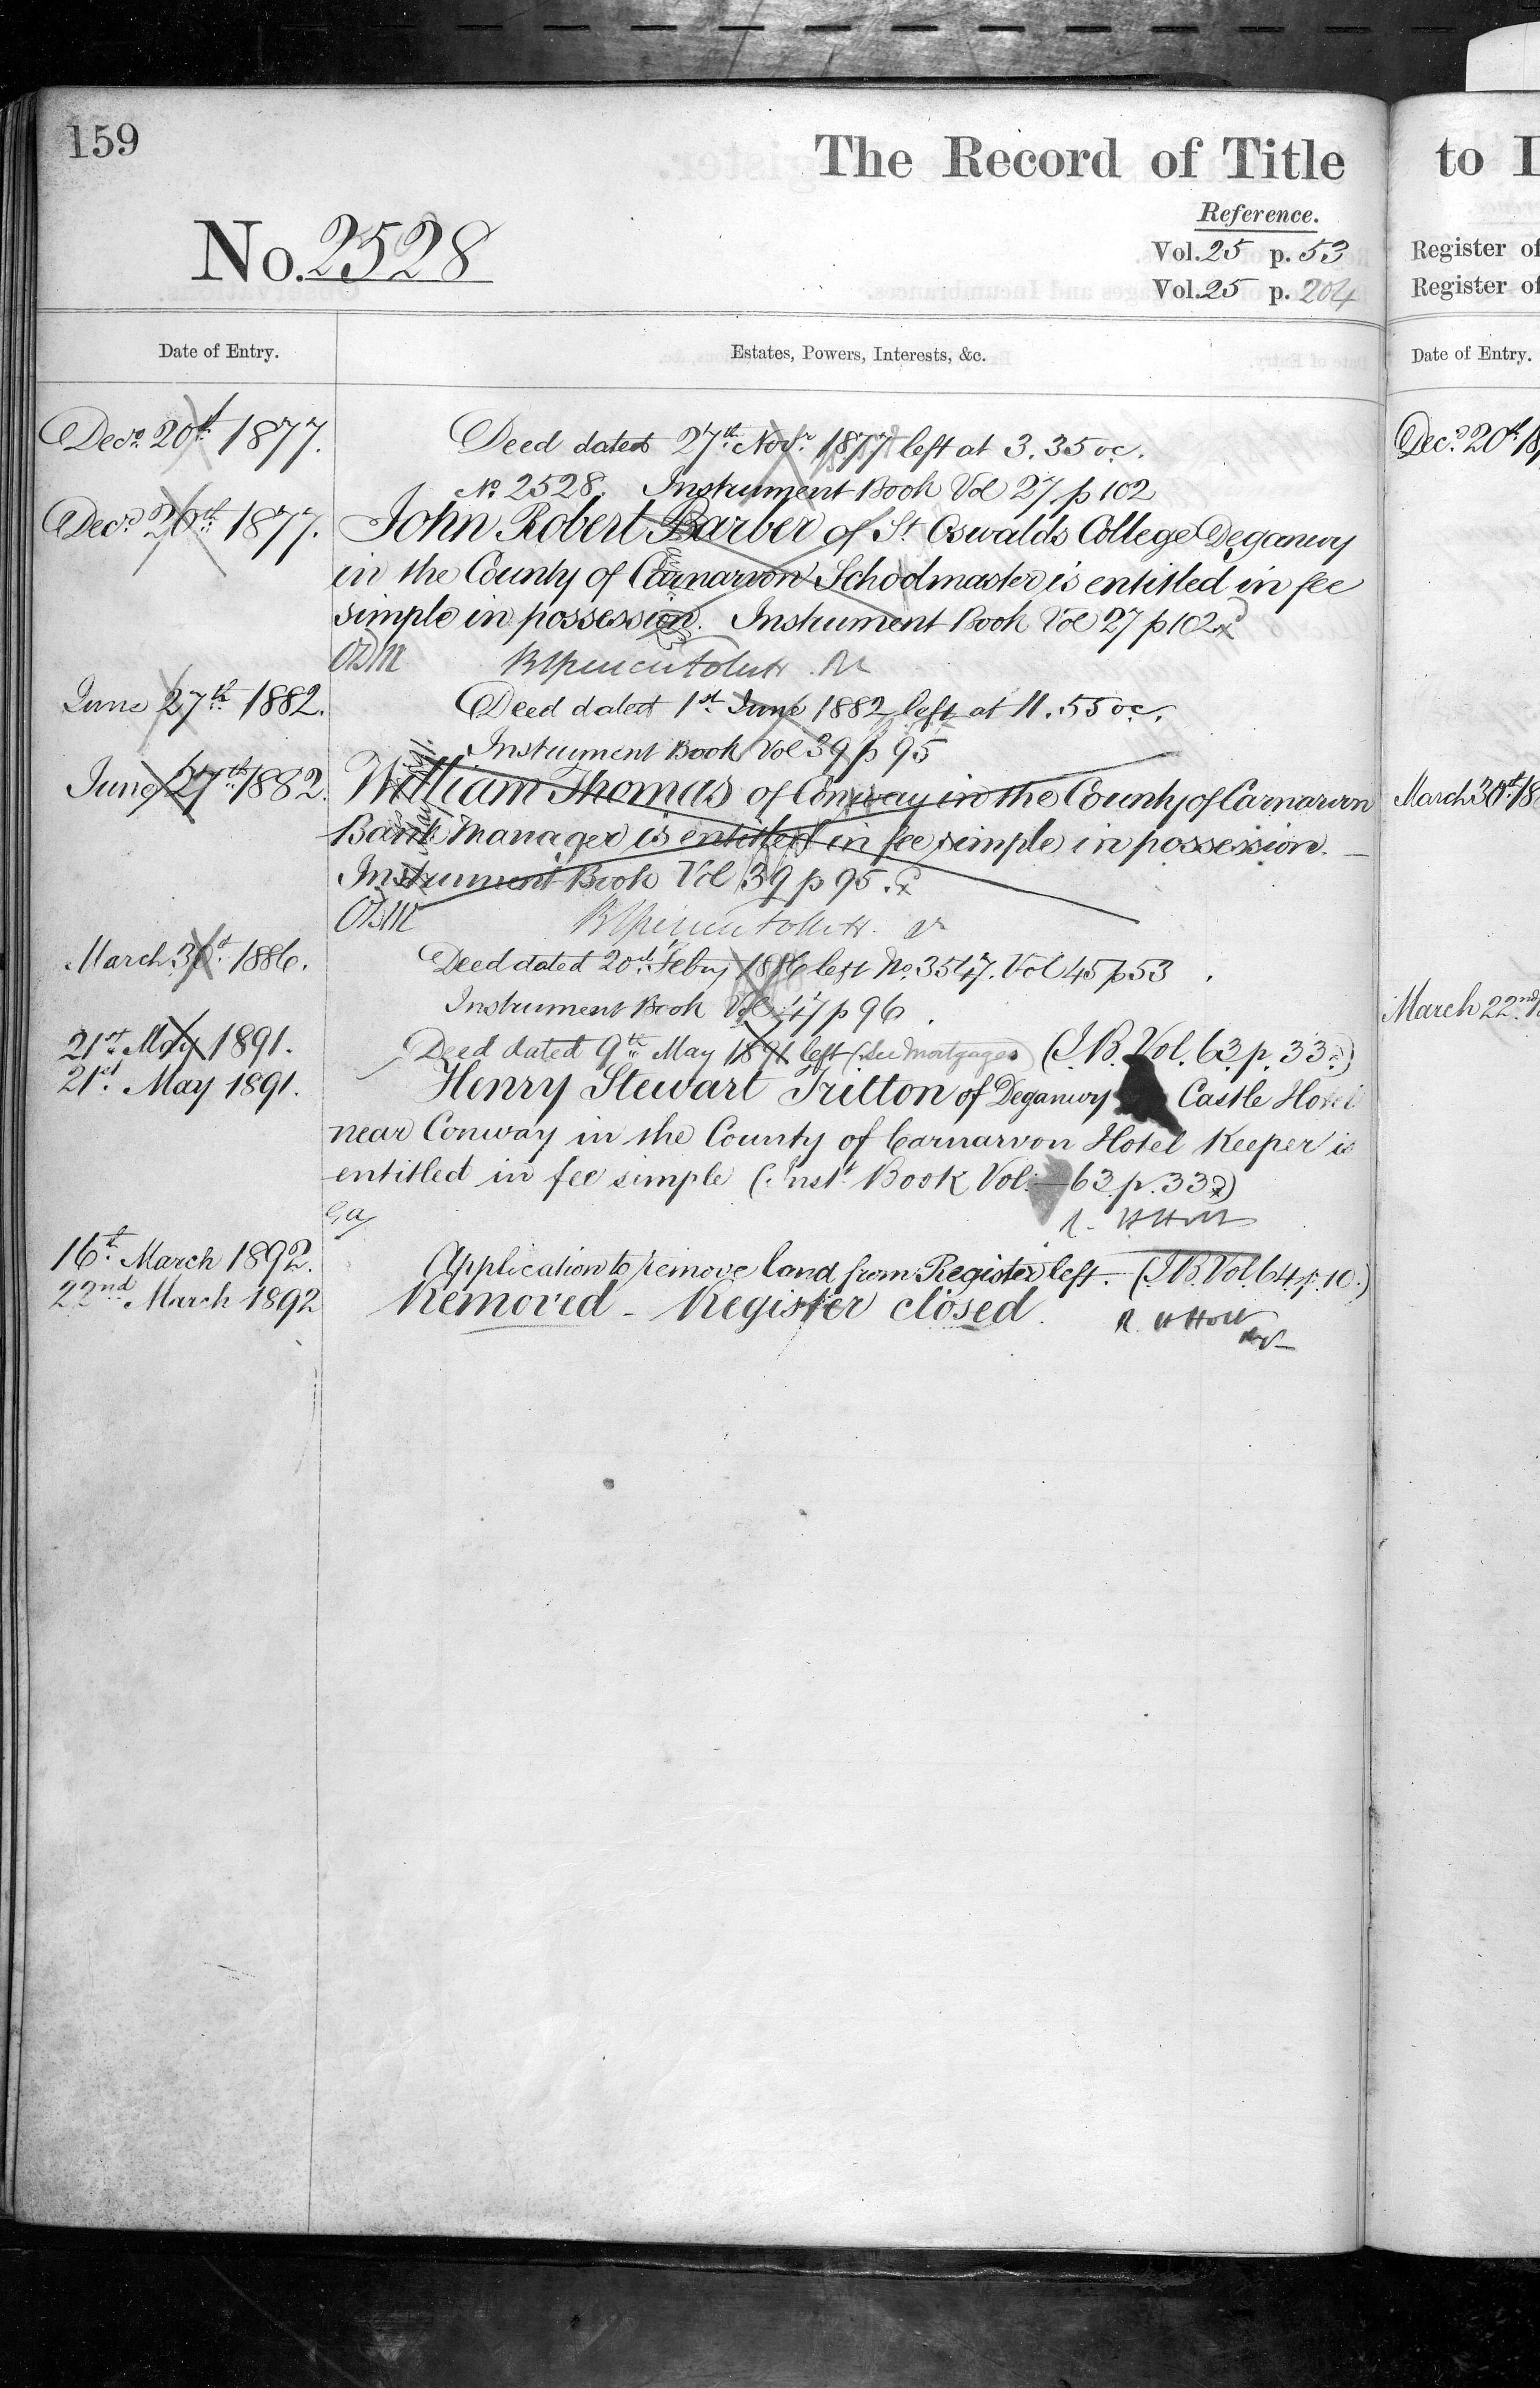 159
The Record of Title
Reference.
No. 2528
Vol. 25 p. 53
Vol. 25 p. 204
Date of Entry.
Estates, Powers, Interests, &c.
Decr. 20th 1877.
Deed dated 27th Novr. 1877 left at 3.35 oc.
No. 2528. Instrument Book Vol 27 p 102
Decr. 20th 1877.
John Robert Barber of St. Oswalds College Deganwy
in the County of Carnarvon Schoolmaster is entitled in fee
simple in possession. Instrument Book Vol 27 p 102
June 27th 1882.
Deed dated 1st June 1882 left at 11.55 oc.
Instrument Book Vol 39 p 95
June 27th 1882.
William Thomas of Conway in the County of Carnarvon
Bank Manager is entitled in fee simple in possession.
Instrument Book Vol 39 p 95.
March 30th 1886.
Deed dated 20th Feby 1886 left No. 3547. Vol 45 p 53
Instrument Book Vol 47 p 96.
21st May 1891.
Deed dated 9th May 1891 left (see mortgages) (I.B. Vol. 63 p. 33)
21st May 1891.
Henry Stewart Tritton of Deganwy Castle Hotel
near Conway in the County of Carnarvon Hotel Keeper is
entitled in fee simple (Inst. Book Vol. 63 p. 33)
16th March 1892.
Application to remove land from Register left. (I.B. Vol. 64 p. 10.)
22nd March 1892
Removed - Register closed.
R. H Holt
to
Register of
Register of
Date of Entry.
Decr. 20th
March 30th
March 22nd